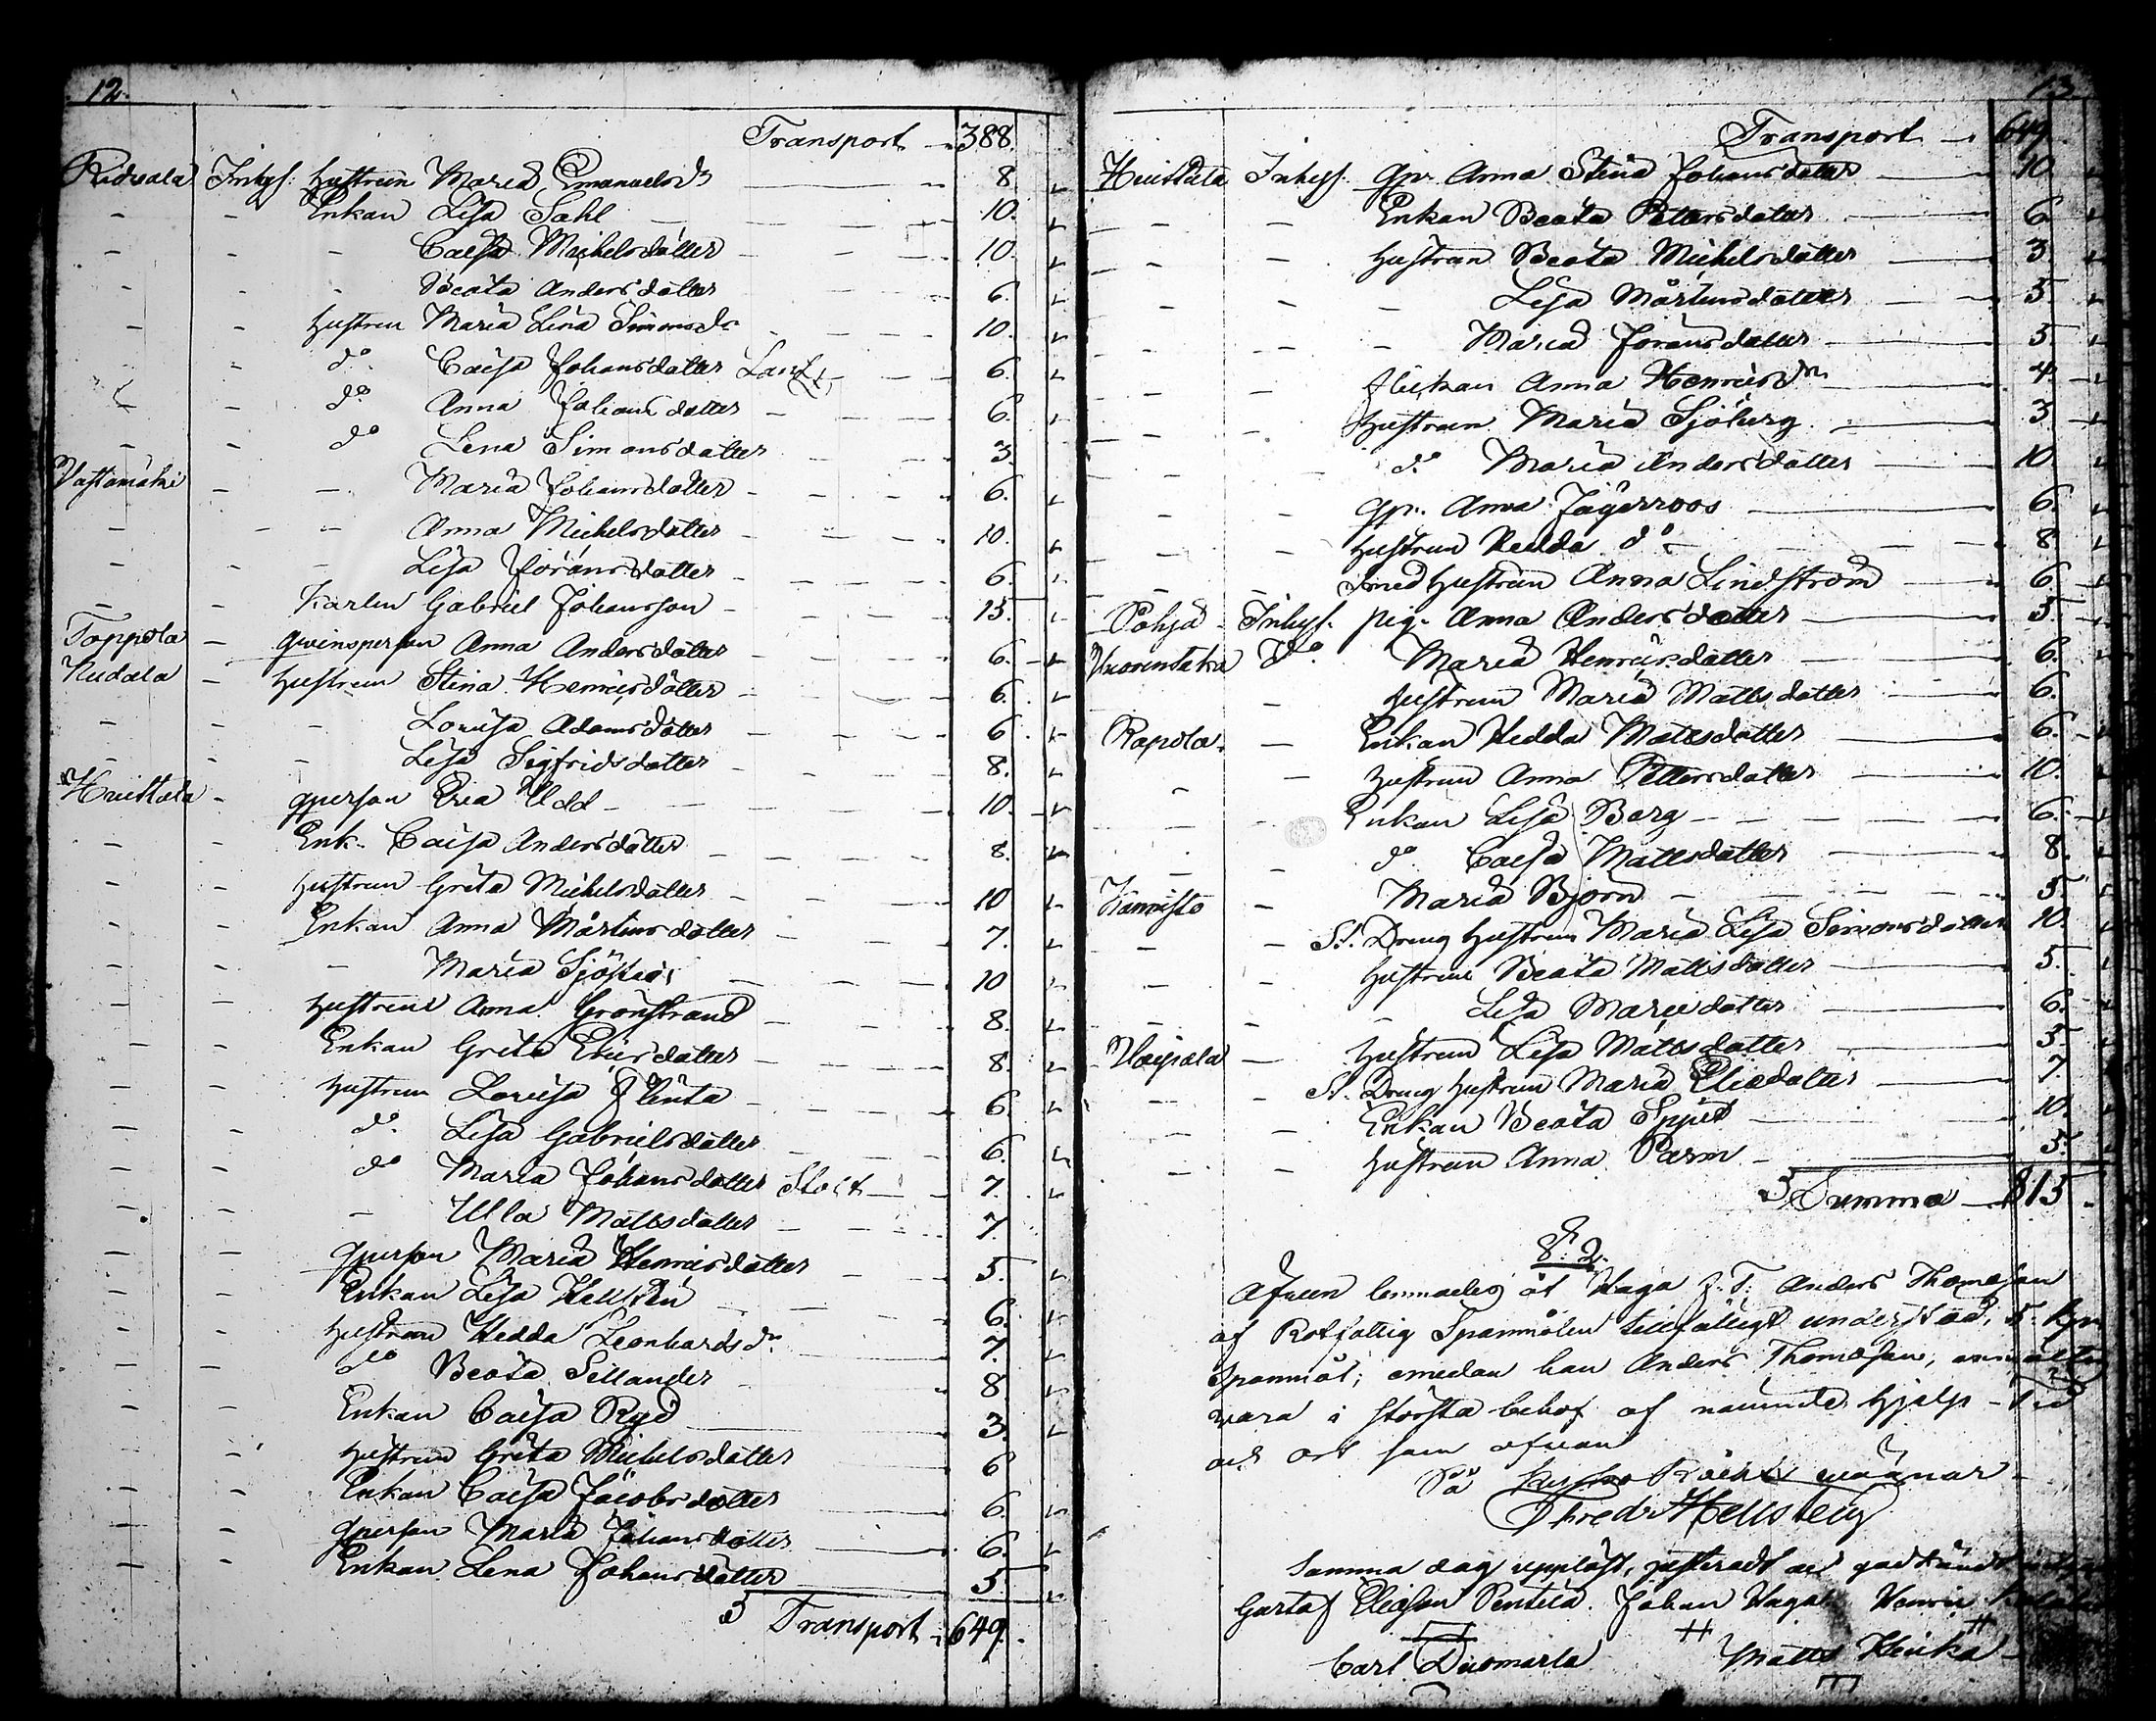 12.
Transport 388.
Ridvala Inhys: hustrun Maria Emanuelsdr 8
- - Enkan Lisa Sahl 10.
- - Caisa Michelsdotter 10.
- - Beata Andersdotter 6.
- - hustrun Maria Lena Simonsdr 10.
- - do Caisa Johansdotter 6.
- - do Anna Johansdotter 6.
- - do Lena Simonsdotter 3.
Vastamäki - - Maria Johansdotter 6.
- - - Anna Michelsdotter 10.
- - - Lisa Jöransdotter 6.
- - Karlen Gabriel Johansson 15.
Toppola - qvinsperson Anna Andersdotter 6.
Nudala - hustrun Stina Henricsdotter 6.
- - - Lovisa Adamsdotter 6
- - - Lisa Sigfridsdotter 8.
Huittala - qperson Eva Udd 10.
- - Enk. Caisa Andersdotter 8.
- - hustrun Greta Michelsdotter 10
- - Enkan Anna Mårtensdotter 7.
- - - Maria 10
- - hustrun Anna Grönstrand 8.
- - Enkan Greta Ericsdotter 8.
- - hustrun Lovisa Flinta 6.
- - do Lisa Gabrielsdotter 6.
- - do Maria Johansdotter Stolt 7.
- - - Ulla Mattsdotter 7.
- - qperson Maria Henricsdotter 5.
- - Enkan Lisa Hellstén 6.
- - hustrun Hedda Leonhardsdr 7.
- - do Beata Sillander 8
- - Enkan Caisa Ryd 3.
- - hustrun Greta Michelsdotter 6
- - Enkan Caisa Jacobsdotter 6.
- - qperson Maria Johansdotter 6.
- - Enkan Lena Johansdotter 5
Transport 649.
13
Transport 649
Huittala Inhys. qpr. Anna Stina Johansdotter 10
- - Enkan Beata Pettersdotter 6
- - hustrun Beata Michelsdotter 3.
- - - Lisa Mårtensdotter 5.
- - - Maria Joransdotter 5
- - flickan Anna Henricsdr 4.
- - hustrun Maria Sjöberg 3
- - do Maria Andersdotter 10
- - qpr. Anna Jägerroos 6.
- - hustrun Hedda do 8
- - smed hustrun Anna Lindström 6
Pohja Inhys. pig. Anna Andersdotter 5
Vuorentaka do Maria Henricsdotter 6.
- hustrun Maria Mattsdotter 6.
Rapola - Enkan Hedda Mattsdotter 6.
- hustrun Anna Pettersdotter 10.
- - Enkan Lisa Berg 6.
- - do Caisa Mattsdotter 8.
Kannisto - Maria Björn 5.
- - St. Dreng hustrun Maria Lisa Simonsdotter 10.
- - hustrun Beata Mattsdotter 5.
- - - Lisa 6.
Uoipala - hustrun Lisa Mattsdotter 5.
- - St. Dreng hustrun Maria Eliædotter 7.
- - Enkan Beata Spjut 10.
- - hustrun Anna Parm 5.
Summa 815
§ 2.
Äfven lemnades åt Haga Anders Thomasson
af Rotfattig Spannmålen tillfälligt understöd, 5 kpr
Spannmål; emedan han Anders Thomasson, anmälte
vara i största behof af nämnde hjelp - Tid
och ort som ofvan
På vägnar
Thred. Hellsberg
Samma dag uppläst, justeradt och godkändt
Gustaf Eliasson Pentilä. Johan Haga. Henric
Carl Duomarla Matts Heicka